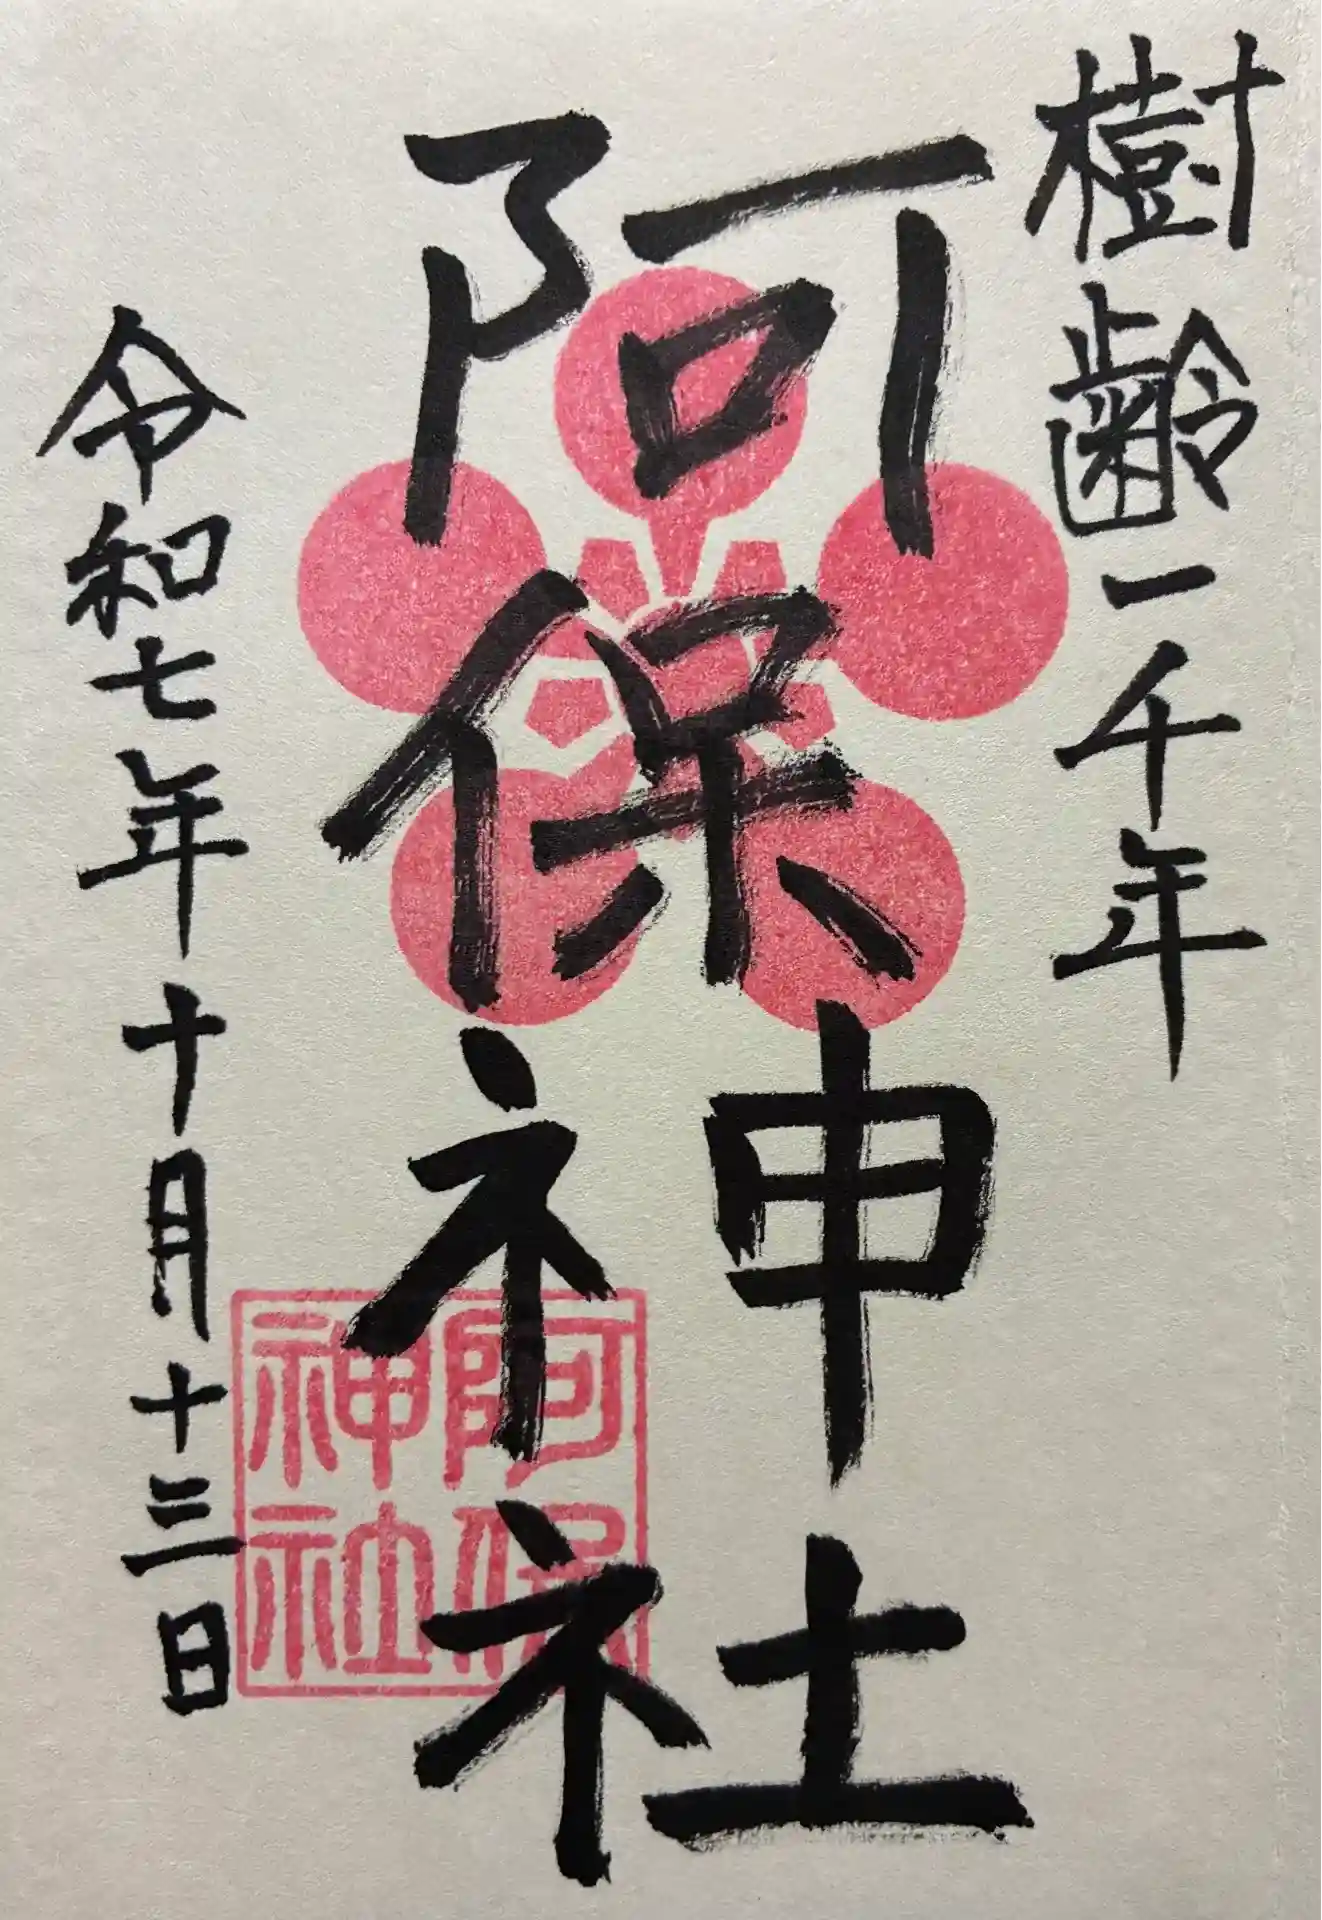 樹齢一千年
阿保神社
令和七年十月十三日
阿保
神社